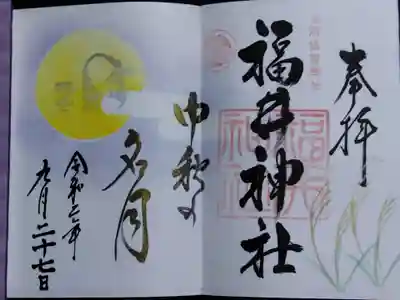 奉拝
福井神社
中秋の
名月
令和二年
九月二十七日